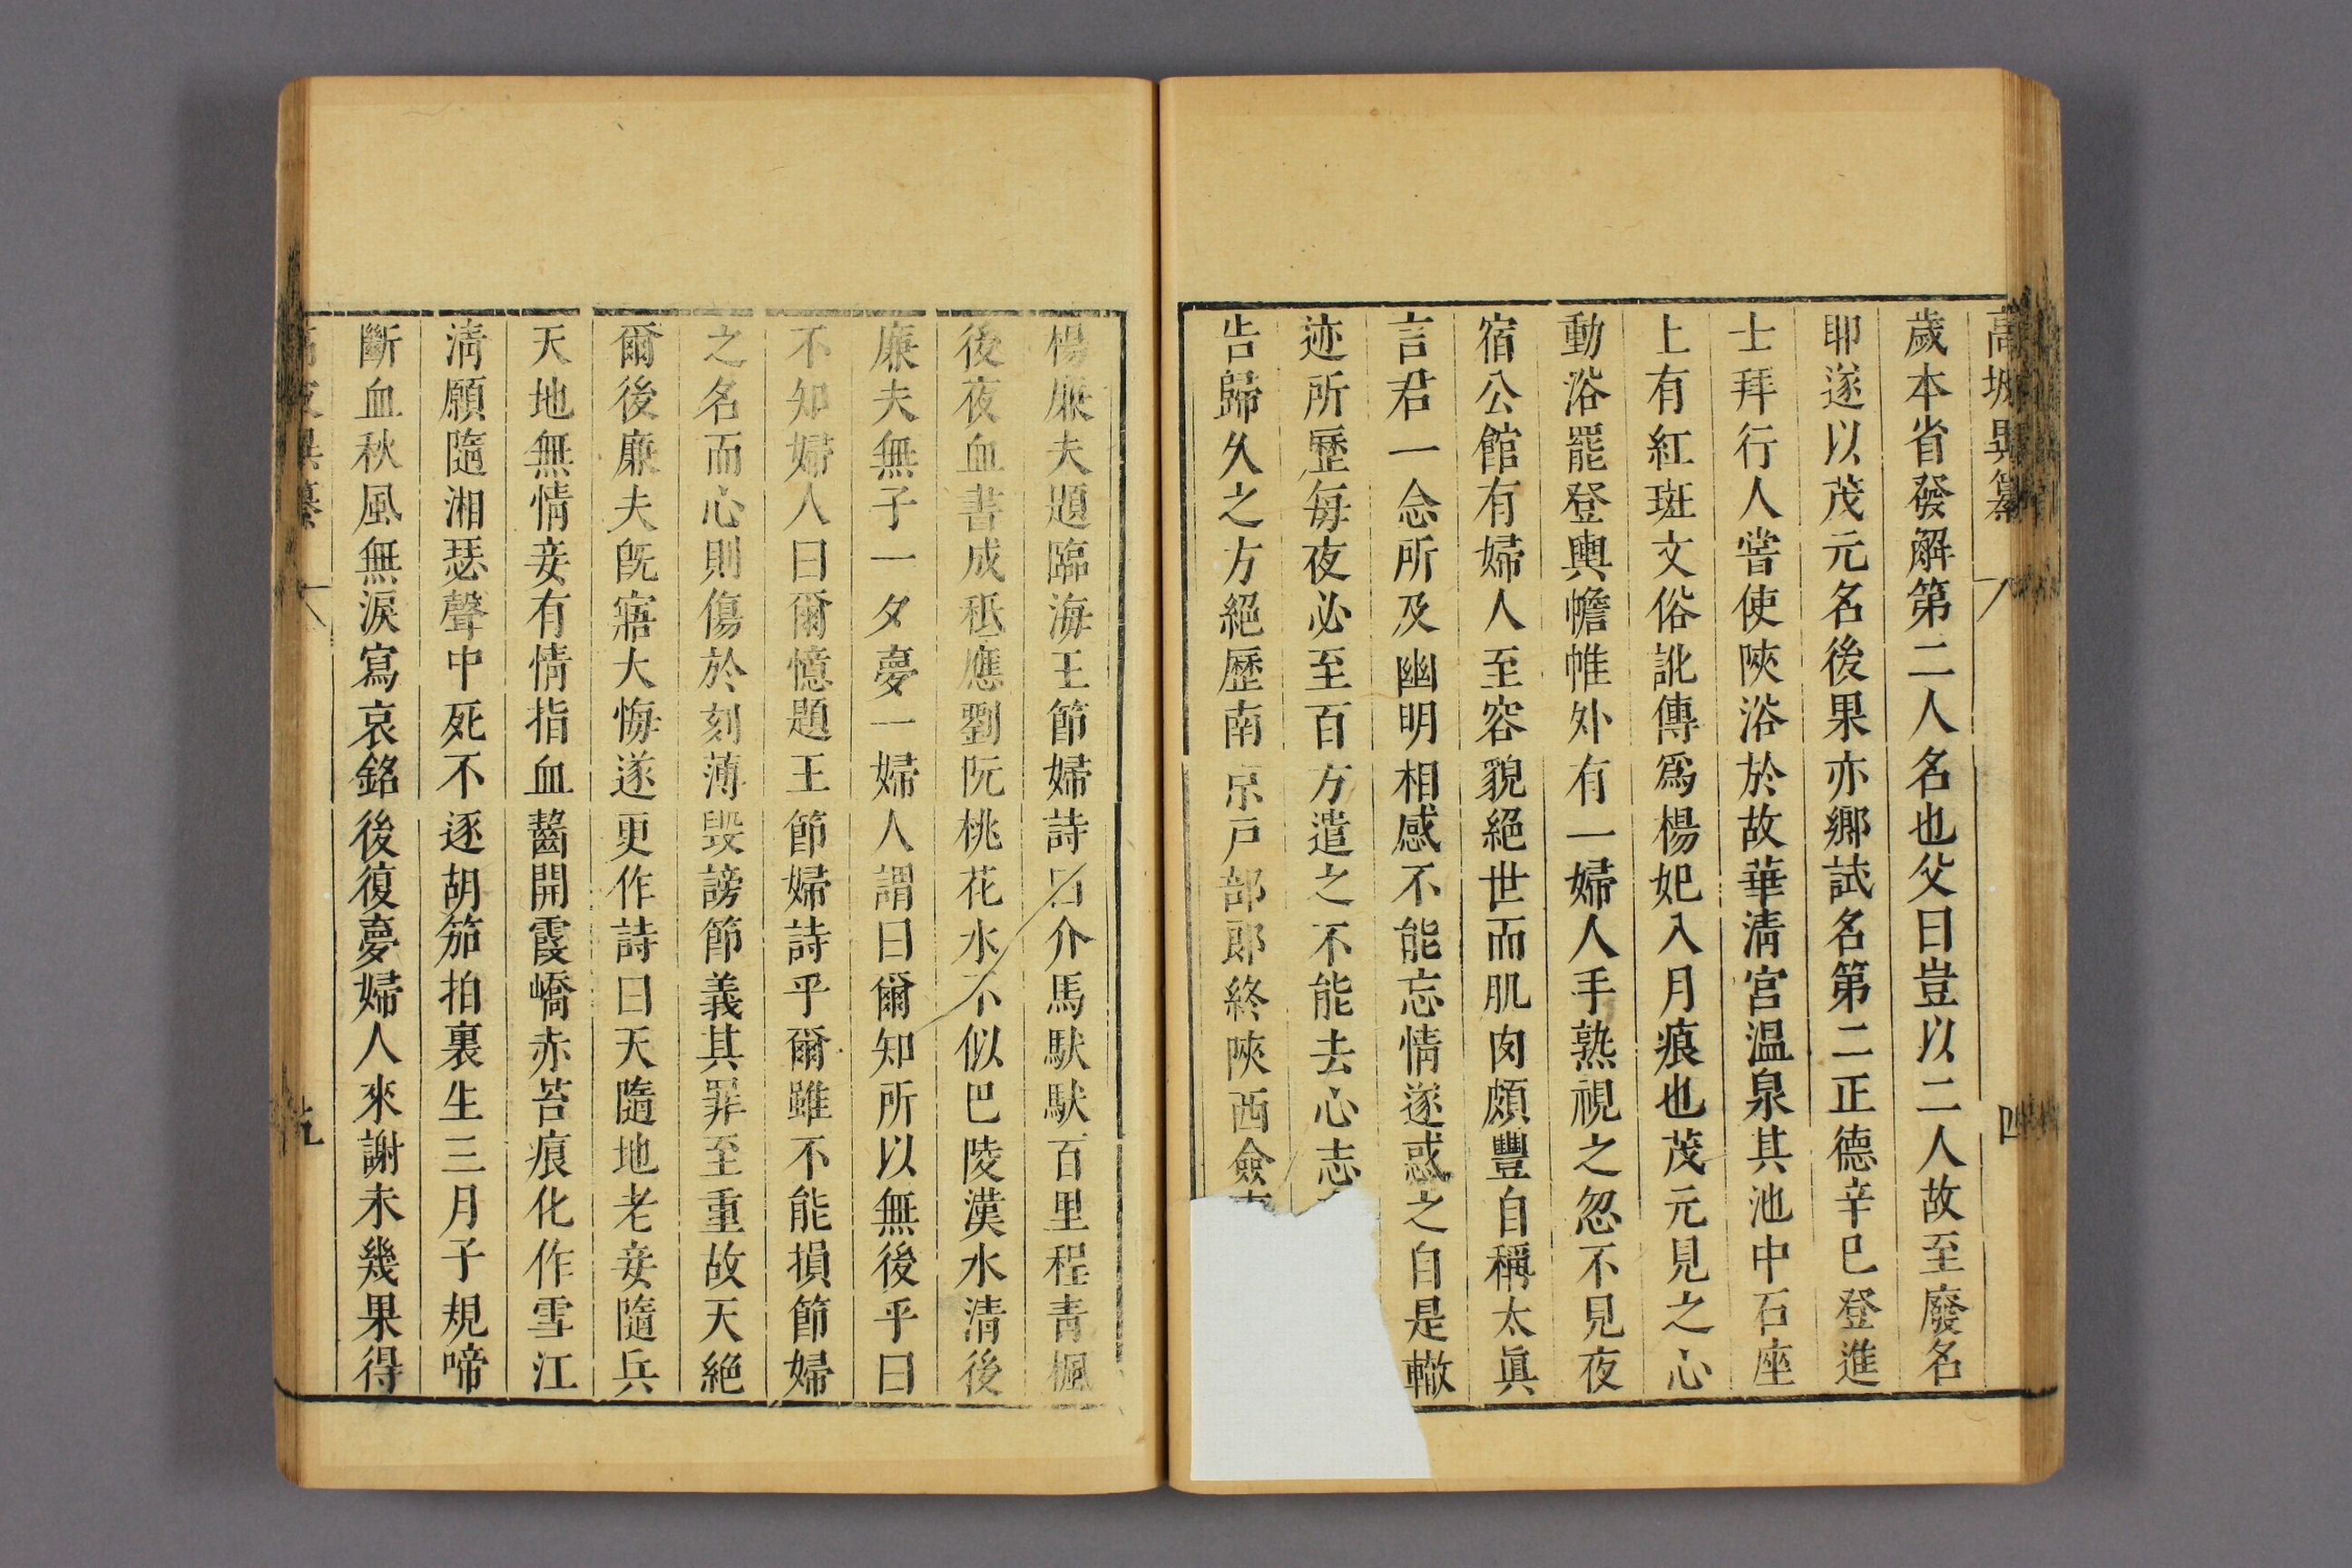 高坡異纂
四
歲本省發解第二人名也父曰豈以二人故至廢名
耶遂以茂元名後果亦鄉試名第二正德辛巳登進
士拜行人嘗使陜浴於故華清宮温泉其池中石座
上有紅斑文俗訛傳爲楊妃入月痕也茂元見之心
動浴罷登輿幨帷外有一婦人手熟視之忽不見夜
宿公館有婦人至容貌絕世而肌肉頗豐自稱太眞
言君一念所及幽明相感不能忘情遂惑之自是轍
迹所歷每夜必至百方遣之不能去心志
告歸久之方絕歷南京戶部郎終陜西僉
楊廉夫題臨海王節婦詩曰介馬馱馱百里程青楓
後夜血書成秪應劉阮桃花水不似巴陵漢水清後
廉夫無子一夕夢一婦人謂曰爾知所以無後乎曰
不知婦人曰爾憶題王節婦詩乎爾雖不能損節婦
之名而心則傷於刻薄毀謗節義其罪至重故天絕
爾後廉夫旣寤大悔遂更作詩曰天隨地老妾隨兵
天地無情妾有情指血齧開霞嶠赤苔痕化作雪江
清願隨湘瑟聲中死不逐胡笳拍裏生三月子規啼
斷血秋風無淚寫哀銘後復夢婦人來謝未幾果得